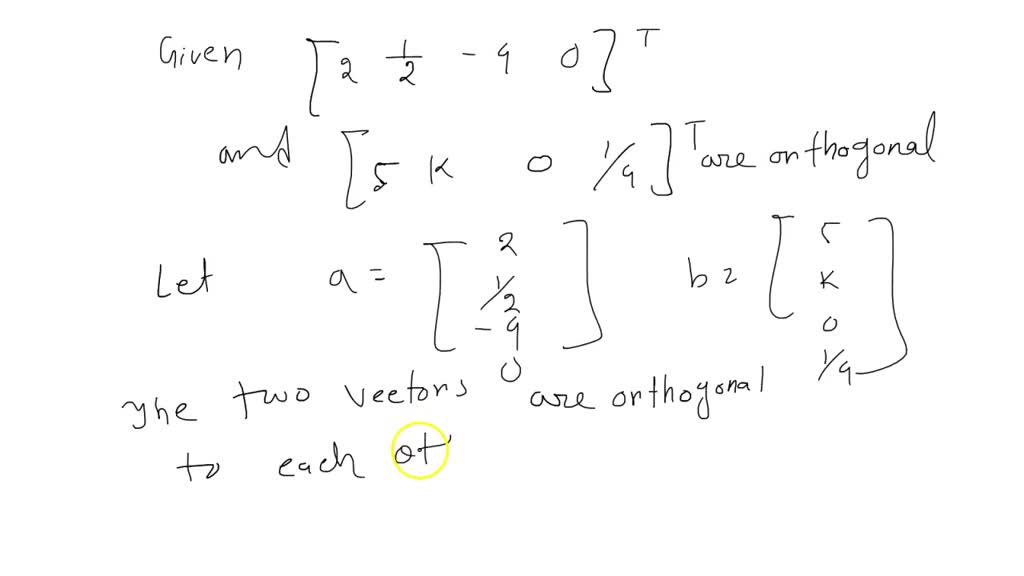 Given [2 1/2 -9 0]^T
and [5 K 0 1/9]^T are orthogonal
Let a = [2 1/2 -9 0] b = [5 K 0 1/9]
The two vectors are orthogonal
to each ot